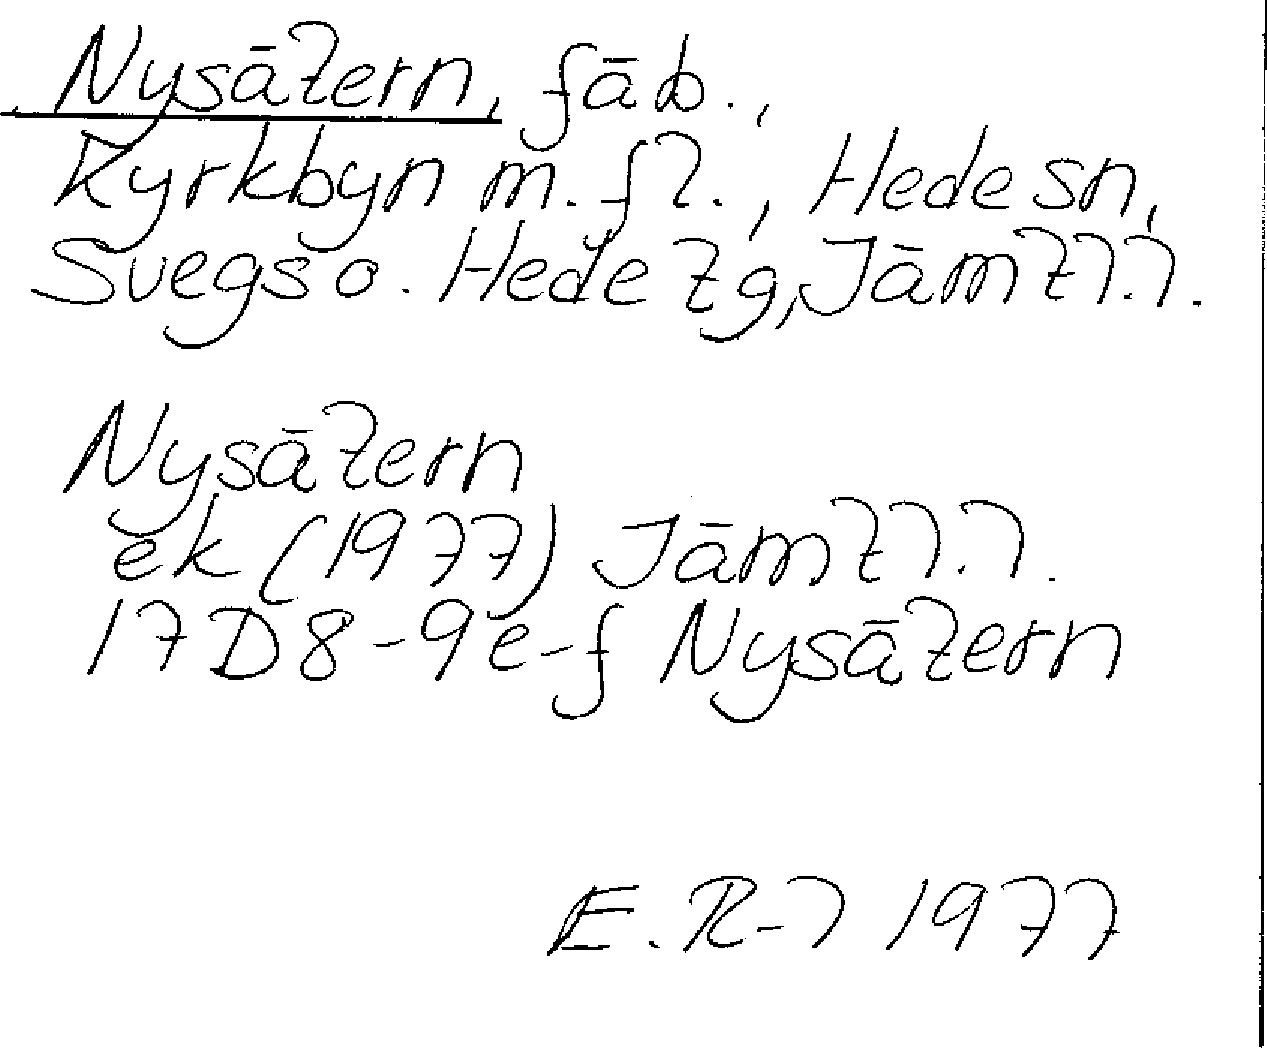 Nysätern, fäb.,
Kyrkbyn m.fl., Hede sn,
Svegs o. Hede tg, Jämtl.l.
Nysätern
ek (1977) Jämtl.l.
17D8-9e-f Nysätern
E.R-l 1977